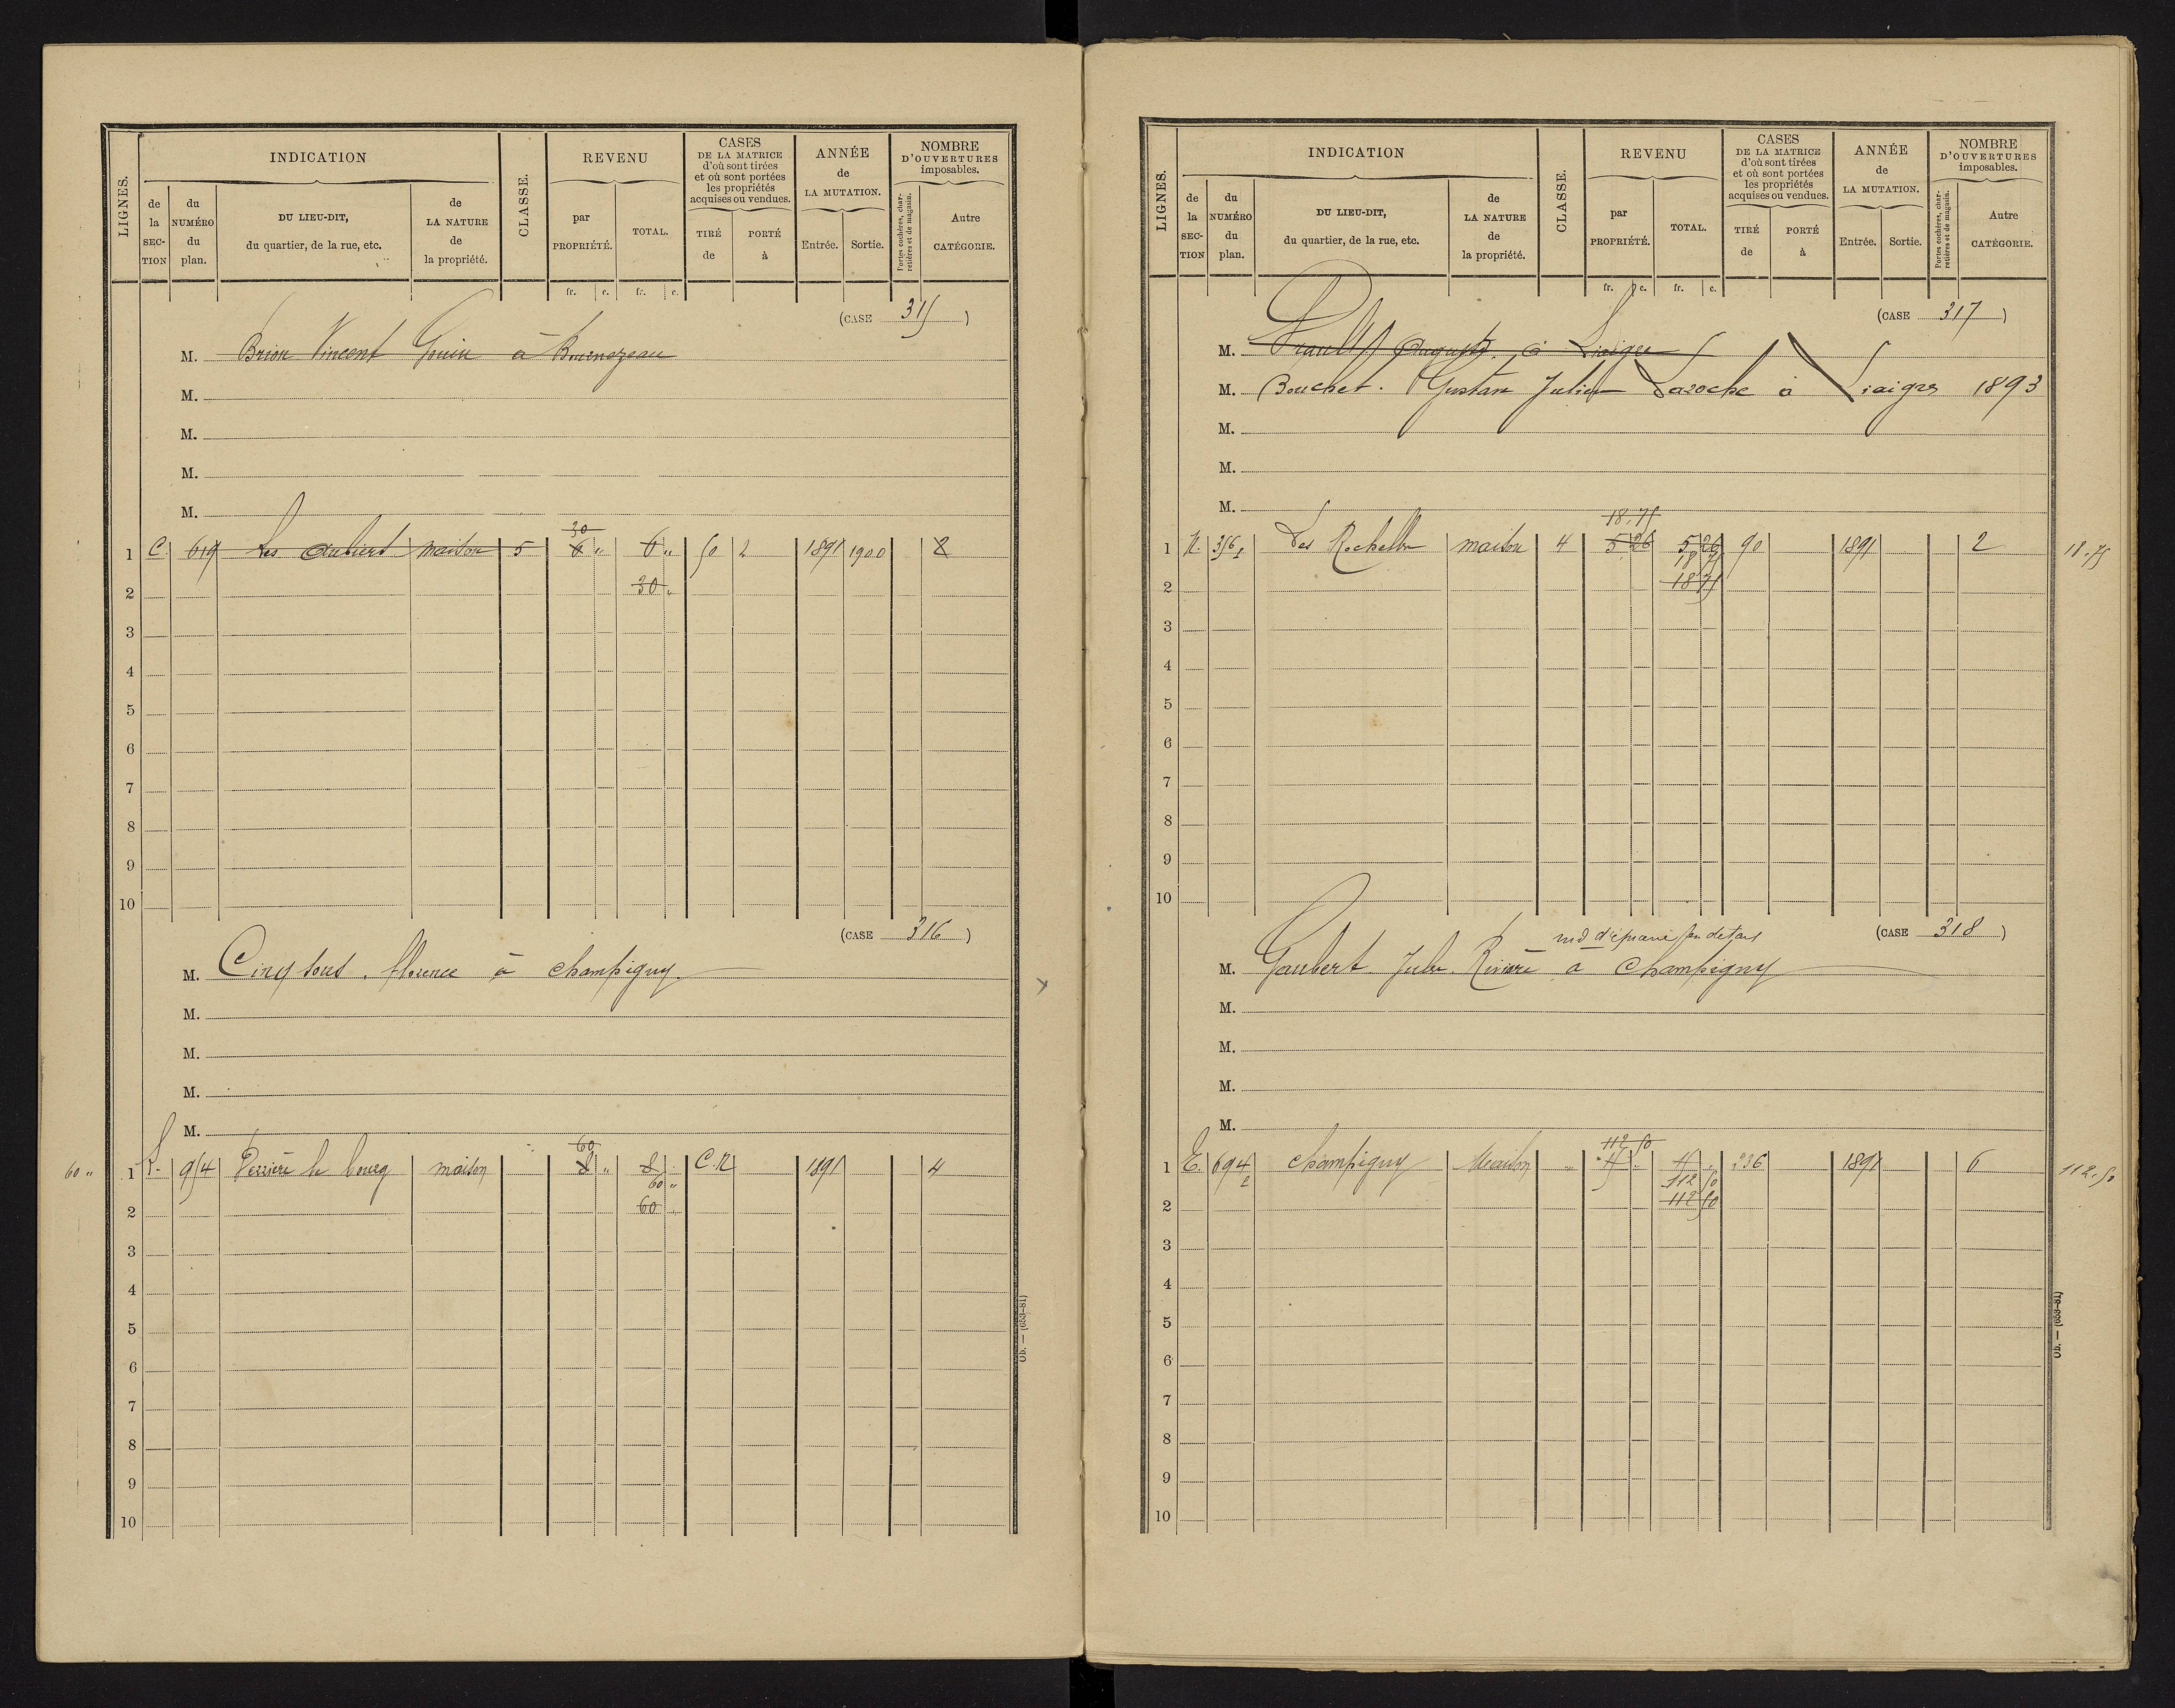 LIGNES.
INDICATION
de la SECTION
du NUMÉRO du plan.
DU LIEU-DIT, du quartier, de la rue, etc.
de LA NATURE de la propriété.
CLASSE.
REVENU
par PROPRIÉTÉ.
TOTAL.
CASES DE LA MATRICE d'où sont tirées et où sont portées les propriétés acquises ou vendues.
TIRÉ de
PORTÉ à
ANNÉE de LA MUTATION.
Entrée.
Sortie.
NOMBRE D'OUVERTURES imposables.
Portes cochères, charretières et de magasin.
Autre CATÉGORIE.
fr. c. fr. c.
(CASE 315)
M. Brion Vincent Gouin à
M.
M.
M.
M.
30
1 C. 619 Les maison 5 6 " 6 " 50 2 1891 1900 2
2 30 "
3
4
5
6
7
8
9
10
(CASE 316)
M. Cinq sous. florence à Champigny.
M.
M.
M.
M.
60
60 " 1 954 le bourg maison 8 " 8 C.N 1891 4
60 "
2 60 "
3
4
5
6
7
8
9
10
Ob. — (653-81)
LIGNES.
INDICATION
de la SECTION
du NUMÉRO du plan.
DU LIEU-DIT, du quartier, de la rue, etc.
de LA NATURE de la propriété.
CLASSE.
REVENU
par PROPRIÉTÉ.
TOTAL.
CASES DE LA MATRICE d'où sont tirées et où sont portées les propriétés acquises ou vendues.
TIRÉ de
PORTÉ à
ANNÉE de LA MUTATION.
Entrée.
Sortie.
NOMBRE D'OUVERTURES imposables.
Portes cochères, charretières et de magasin.
Autre CATÉGORIE.
fr. c. fr. c.
(CASE 317)
M. Auguste à Liaigre
M. Bouchet. Gustave Julien Laroche à Liaigres 1893
M.
M.
M.
18.75
1 356 1 Les maison 4 5 26 5 26 90 1891 2 18.75
18 75
2 18 75
3
4
5
6
7
8
9
10
(CASE 318)
md d'épicerie en détail
M. Gaubert Jules Rivière à Champigny
M.
M.
M.
M.
112 50
1 E. 694 2 Champigny Maison " 15 " 15 " 236 1891 6 112.50
112 50
2 112 50
3
4
5
6
7
8
9
10
Ob. — (653-81)